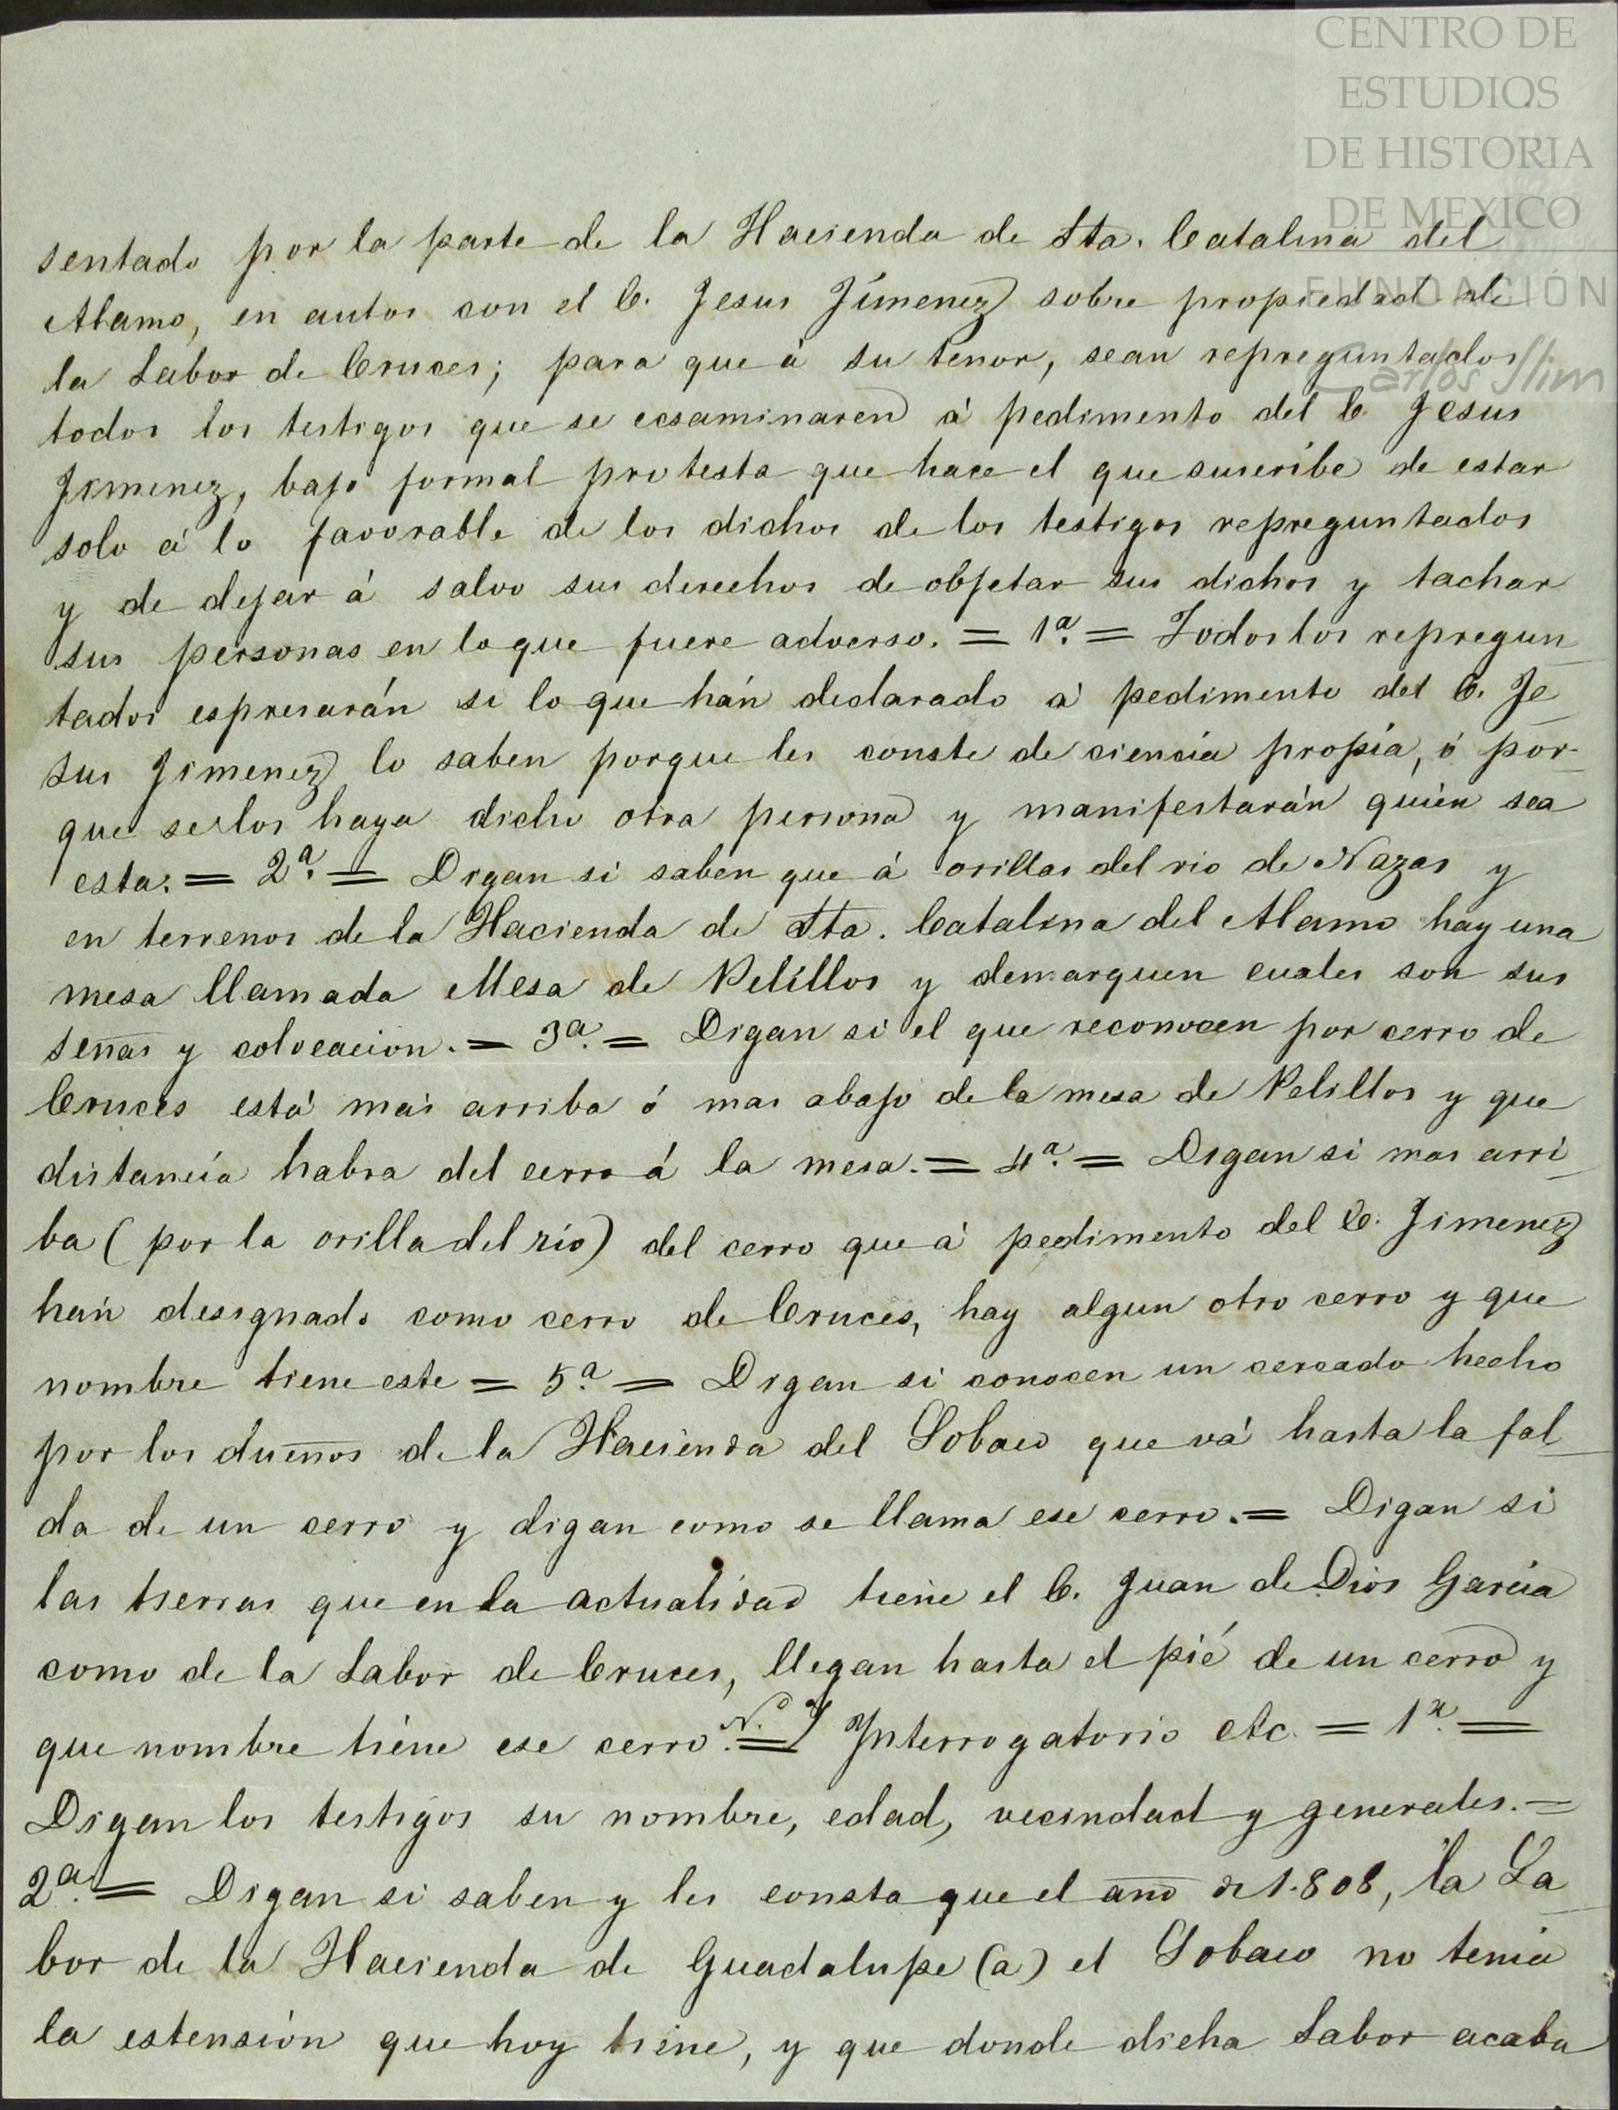 CENTRO DE
ESTUDIOS
DE HISTORIA
DE MEXICO
FUNDACIÓN
Carlos Slim
sentado por la parte de la Hacienda de Sta. Catalina del
Alamo, en autos con el C. Jesus Jimenez sobre propiedad de
la Labor de Cruces; para que á su tenor, sean repreguntados
todos los testigos que se ecsaminaren á pedimento del C. Jesus
Jimenez, bajo formal protesta que hace el que suscribe de estar
solo á lo favorable de los dichos de los testigos repreguntados
y de dejar á salvo sus derechos de objetar sus dichos y tachar
sus personas en lo que fuere adverso. = 1ª. = Todos los repregun
tados espresarán si lo que hán declarado á pedimento del C. Je
sus Jimenez lo saben porque les conste de ciencia propia, ó por-
que se los haya dicho otra persona y manifestarán quién sea
esta. = 2ª. = Digan si saben que á orillas del rio de Nazas y
en terrenos de la Hacienda de Sta. Catalina del Alamo hay una
mesa llamada Mesa de Pelillos y demarquen cuales son sus
señas y colocacion. = 3ª. = Digan si el que reconocen por cerro de
Cruces está mas arriba ó mas abajo de la mesa de Pelillos y que
distancia habra del cerro á la mesa. = 4ª. = Digan si mas arri
ba (por la orilla del rio) del cerro que á pedimento del C. Jimenez
hán designado como cerro de Cruces, hay algun otro cerro y que
nombre tiene este = 5ª. = Digan si conocen un cercado hecho
por los dueños de la Hacienda del Sobaco que vá hasta la fal
da de un cerro y digan como se llama ese cerro. = Digan si
las tierras que en la actualidad tiene el C. Juan de Dios Garcia
como de la Labor de Cruces, llegan hasta el pié de un cerro y
que nombre tiene ese cerro. = Interrogatorio etc. = 1ª. =
Digan los testigos su nombre, edad, vecindad y generales. =
2ª. = Digan si saben y les consta que el año de 1.808, la La
bor de la Hacienda de Guadalupe (a) el Sobaco no tenia
la estensión que hoy tiene, y que donde dicha Labor acaba